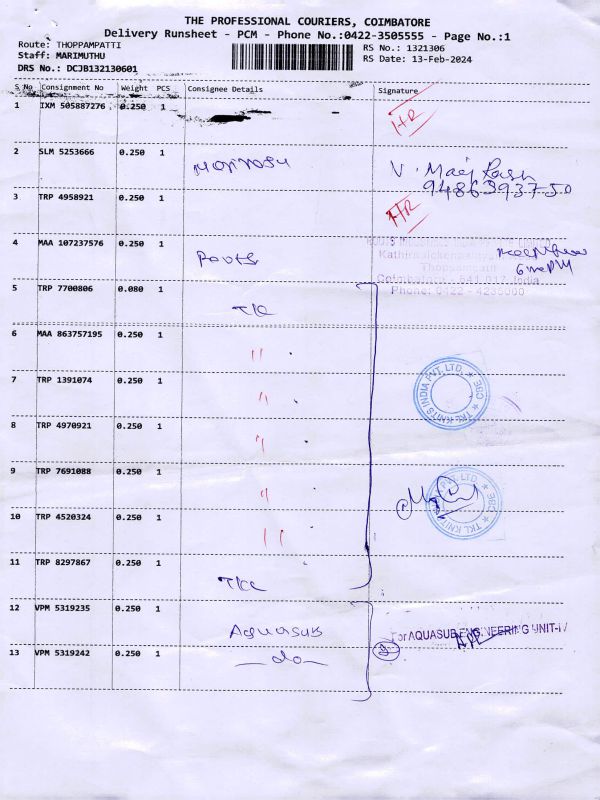 THE PROFESSIONAL COURIERS, COIMBATORE
Delivery Runsheet - PCM - Phone No.:0422-3505555 - Page No.:1
Route: THOPPAMPATTI
Staff: MARIMUTHU
DRS No.: DCJB132130601
RS No.: 1321306
RS Date: 13-Feb-2024
S No Consignment No Weight PCS Consignee Details Signature
1 IXM 505887276 0.250 1
2 SLM 5253666 0.250 1
9486393750
3 TRP 4958921 0.250 1
4 MAA 107237576 0.250 1
Coimbatore - 641 017, India
5 TRP 7700806 0.080 1
6 MAA 863757195 0.250 1 "
7 TRP 1391074 0.250 1 "
TKL KNITS INDIA PVT. LTD. ★ CBE ★
8 TRP 4970921 0.250 1 "
9 TRP 7691088 0.250 1 "
10 TRP 4520324 0.250 1 "
11 TRP 8297867 0.250 1
12 VPM 5319235 0.250 1 Aquasub
For AQUASUB ENGINEERING UNIT-IV
13 VPM 5319242 0.250 1 —do— 2